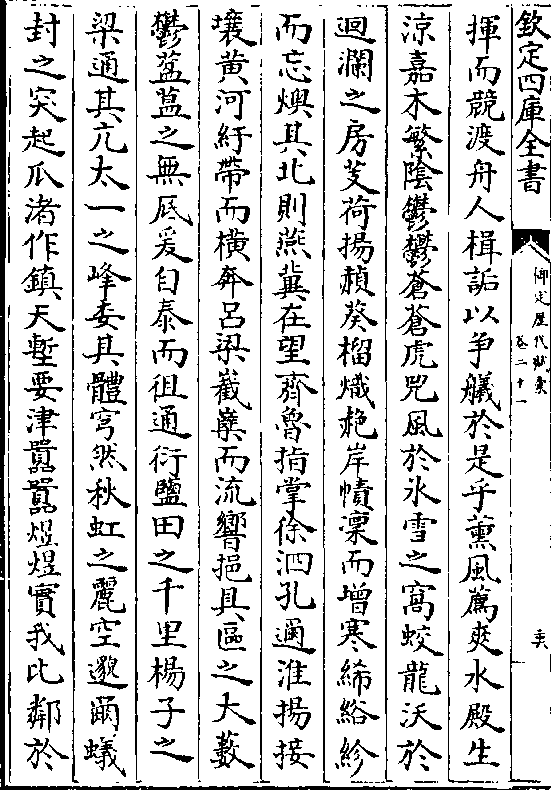 欽定四庫全書
御定歴代賦彙
卷二十一
揮而競渡舟人楫詬以争艤於是乎薫風薦爽水殿生
涼嘉木繁陰鬱鬱蒼蒼虎兕風於氷雪之窩蛟龍沃於
迴瀾之房芰荷揚赬葵榴熾赩岸幘凛而增寒絺綌紾
而忘燠其北則燕冀在望齊魯指掌徐泗孔邇淮揚接
壤黄河紆帶而横奔吕梁巀嶭而流響挹具區之大藪
鬱藍藍之無底爰自泰而徂通衍鹽田之千里楊子之
梁通其亢太一之峰委其體穹然秋虹之麗空邈爾蟻
封之突起瓜渚作鎮天塹要津嚚嚚煜煜實我比鄰於